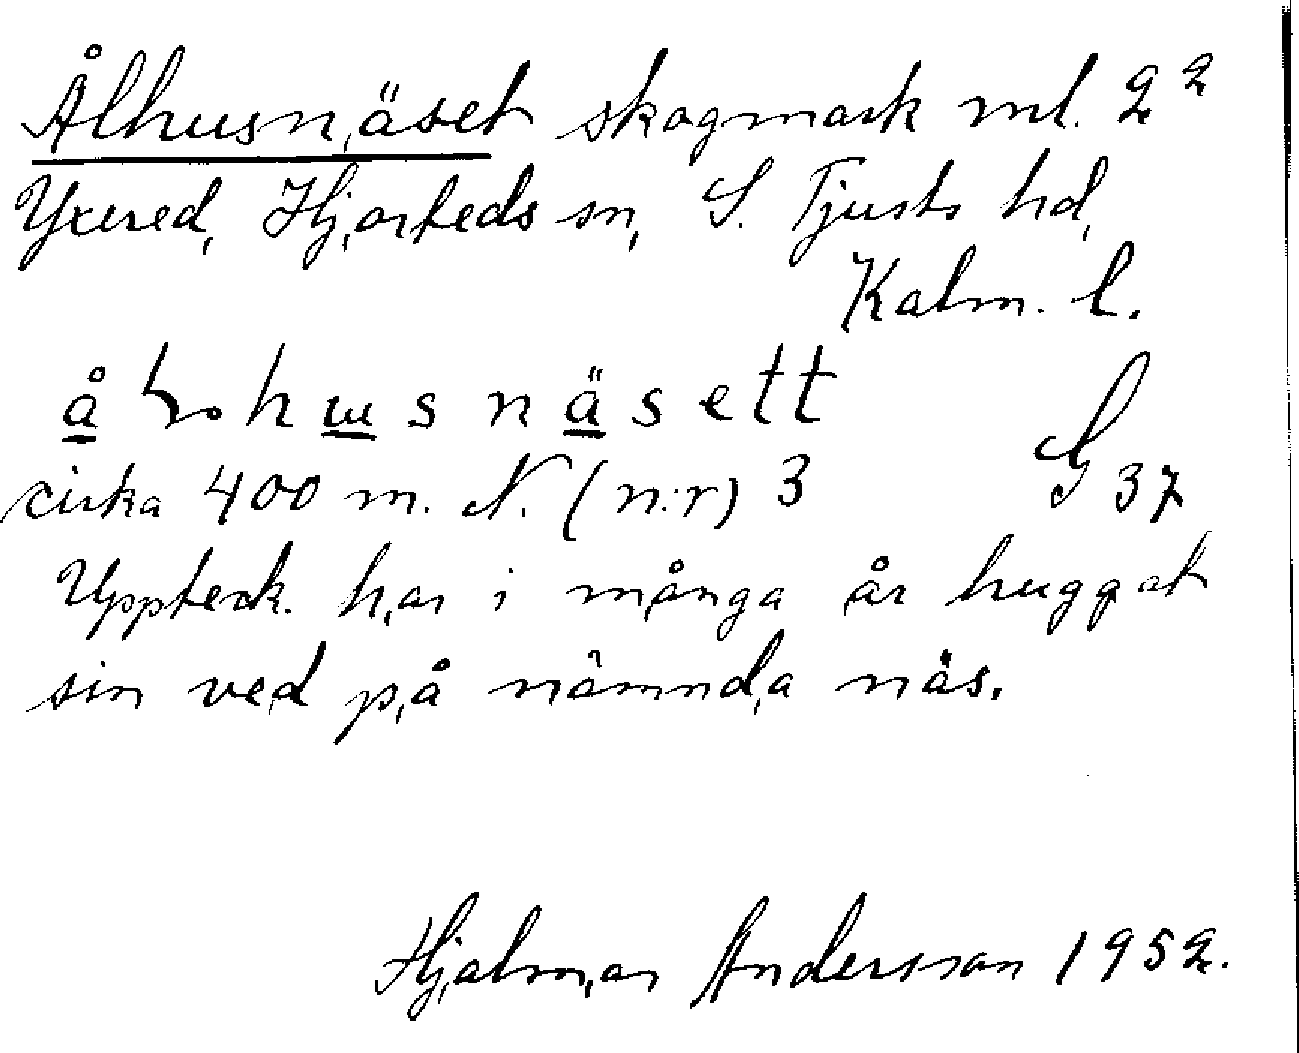 Ålhusnäset skogmark ml. 2²
Yxered, Hjorteds sn, S. Tjusts hd,
Kalm. l.
husnäsett
cirka 400 m. N. (n:r) 3 G 37
Uppteck. har i många år huggat
sin ved på nämnda näs.
Hjalmar Andersson 1952.